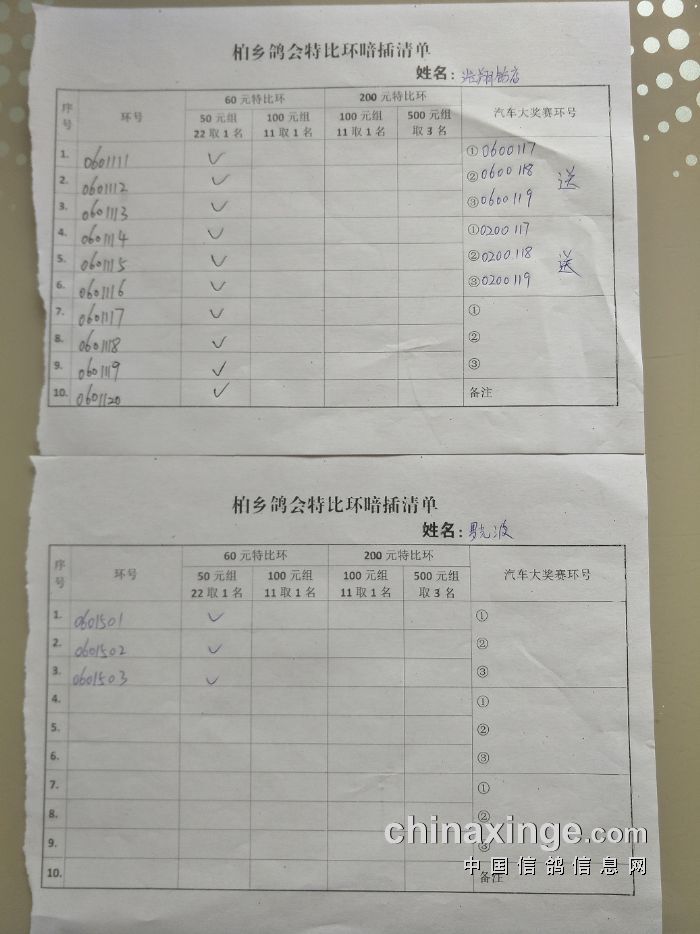 柏乡鸽会特比环暗插清单
姓名：翔鸽店
序号 环号 60 元特比环 200 元特比环 汽车大奖赛环号
50 元组 22 取 1 名 100 元组 11 取 1 名 100 元组 11 取 1 名 500 元组 取 3 名
1. 0601111 ✓ ①0600117
2. 0601112 ✓ ②0600118 送
3. 0601113 ✓ ③0600119
4. 0601114 ✓ ①0200117
5. 0601115 ✓ ②0200118 送
6. 0601116 ✓ ③0200119
7. 0601117 ✓ ①
8. 0601118 ✓ ②
9. 0601119 ✓ ③
10. 0601120 ✓ 备注
柏乡鸽会特比环暗插清单
姓名：波
序号 环号 60 元特比环 200 元特比环 汽车大奖赛环号
50 元组 22 取 1 名 100 元组 11 取 1 名 100 元组 11 取 1 名 500 元组 取 3 名
1. 0601501 ✓ ①
2. 0601502 ✓ ②
3. 0601503 ✓ ③
4. ①
5. ②
6. ③
7. ①
8. ②
9. ③
10. 备注
chinaxinge.com
中国信鸽信息网